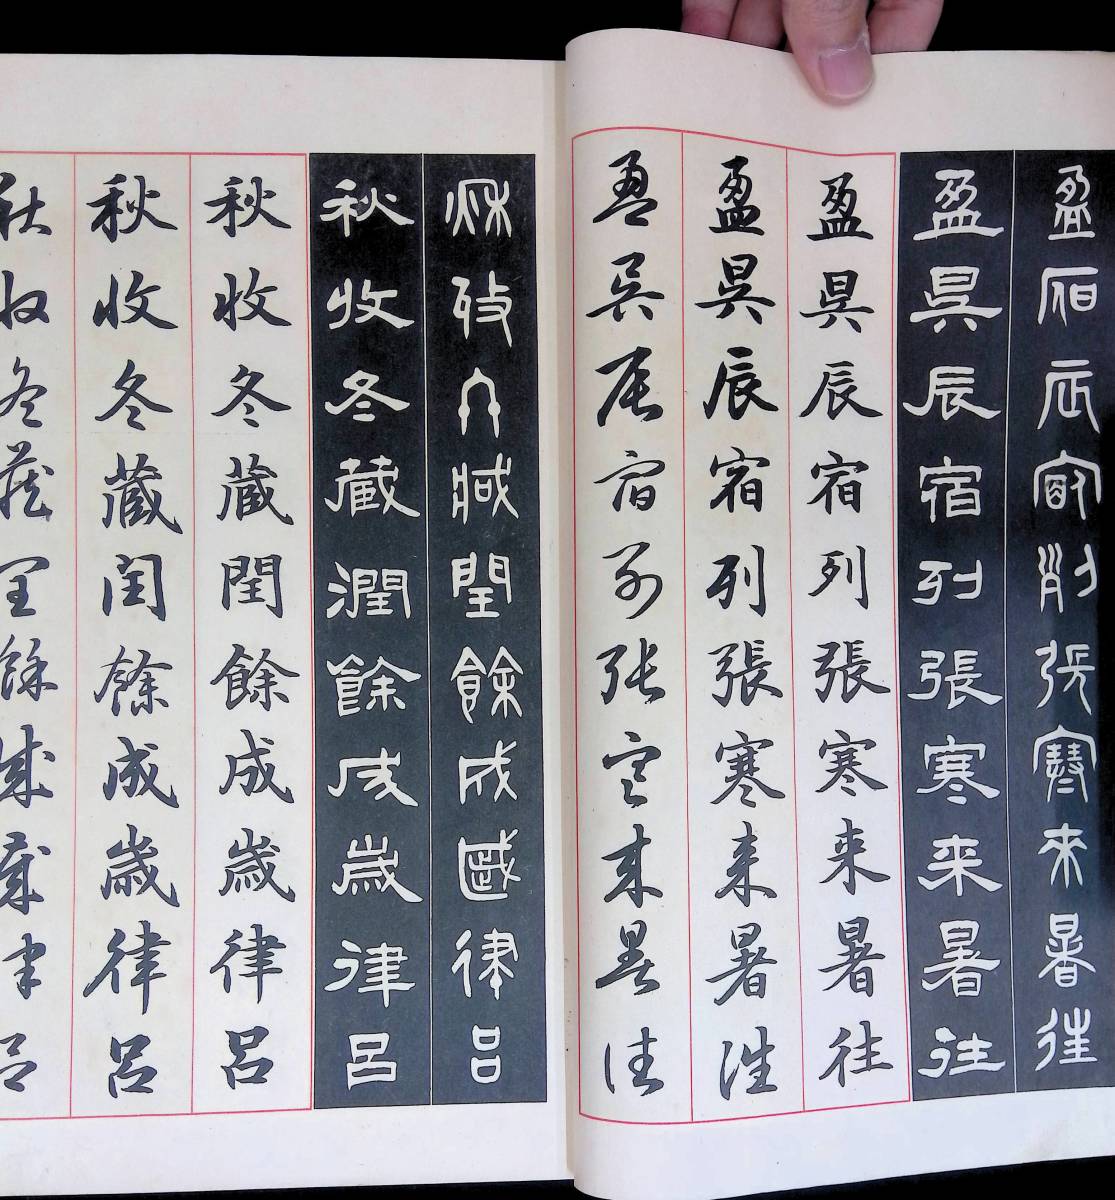 盈昃辰宿列張寒来暑往
盈昃辰宿列張寒来暑往
盈昃辰宿列張寒来暑往
盈昃辰宿列張寒来暑往
盈昃辰宿列張寒来暑往
秋收冬藏閏餘成歲律呂
秋收冬藏潤餘成歲律呂
秋收冬藏閏餘成歲律呂
秋收冬藏閏餘成歲律呂
秋收冬藏閏餘成歲律呂